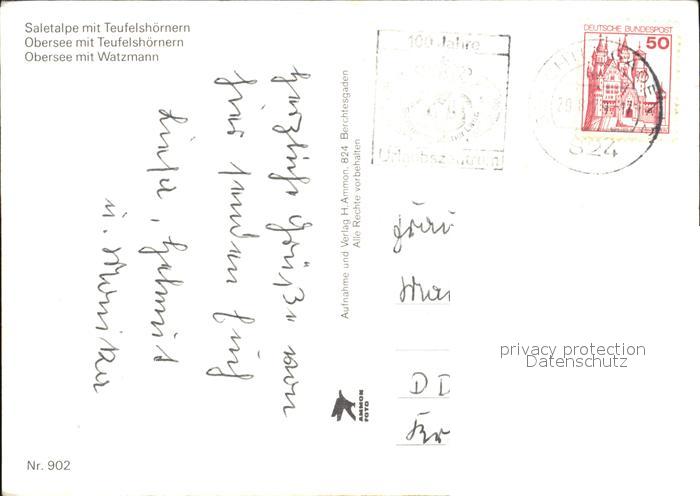 Saletalpe mit Teufelshörnern
Obersee mit Teufelshörnern
Obersee mit Watzmann
100 Jahre
Urlaubszentrum
DEUTSCHE BUNDESPOST
50
824
Herzliche Grüße von
hier senden Euch
Helmut
u. Monika
Aufnahme und Verlag H. Ammon, 824 Berchtesgaden
Alle Rechte vorbehalten
AMMON
FOTO
Frau
privacy protection
Datenschutz
Nr. 902